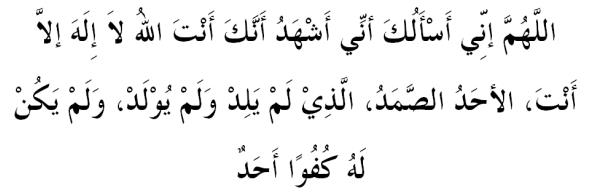 اللَّهُمَّ إنِّي أَسْأَلُكَ أنِّي أَشْهَدُ أَنَّكَ أَنْتَ اللهُ لاَ إِلَهَ إلاَّ
أَنْتَ، الأحَدُ الصَّمَدُ، الَّذِيْ لَمْ يَلِدْ وَلَمْ يُوْلَدْ، وَلَمْ يَكُنْ
لَهُ كُفُوًا أَحَدٌ